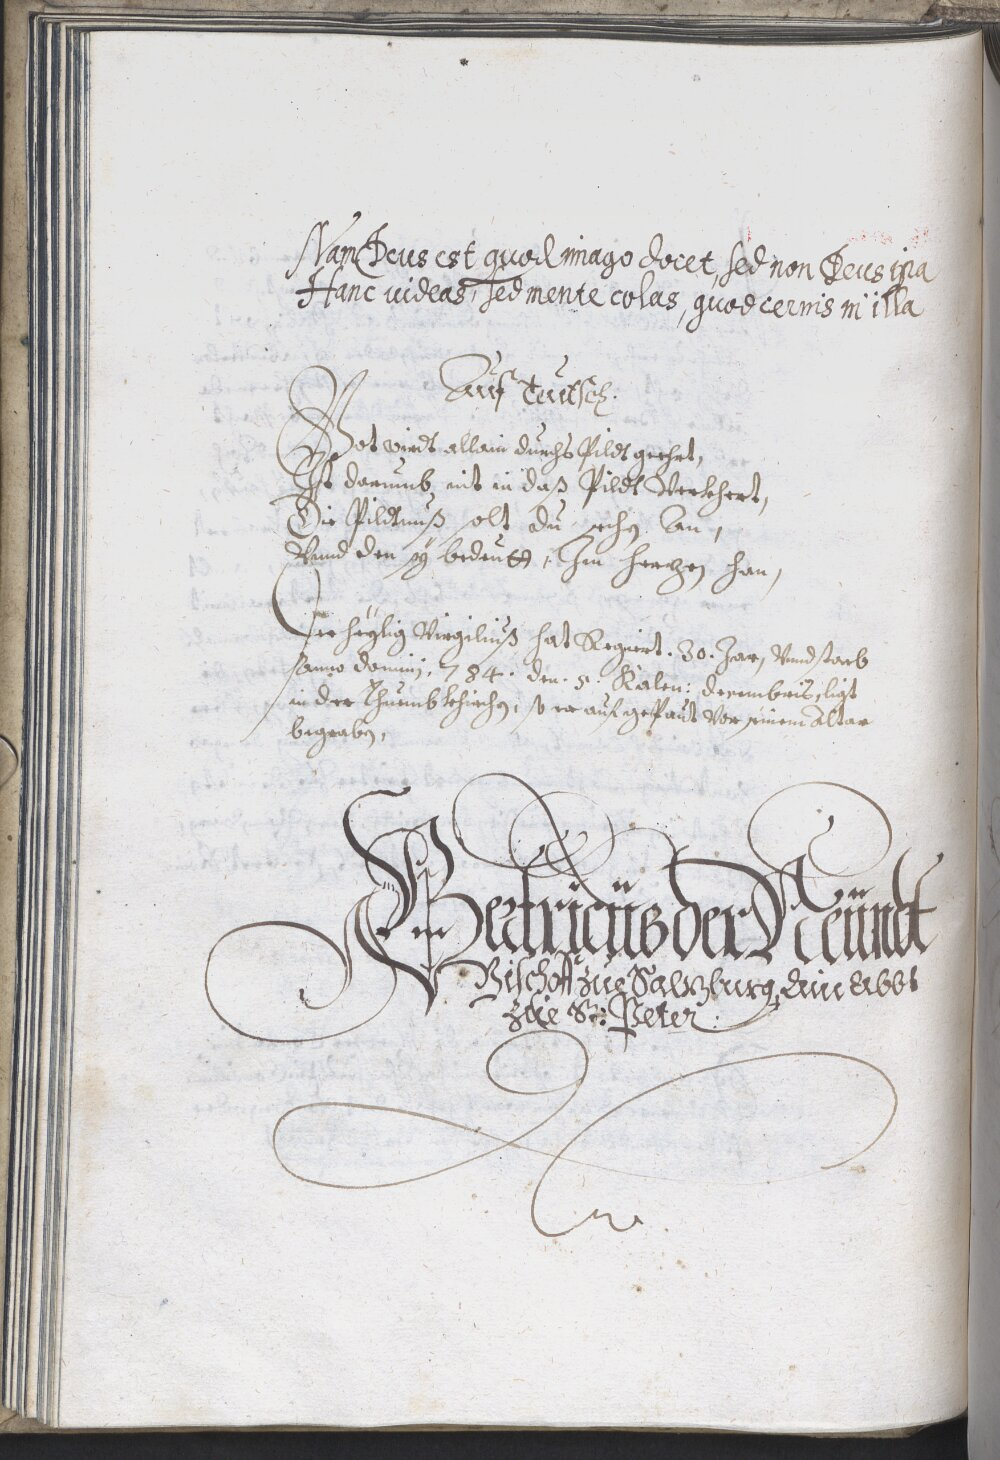 Nam Deus est quod imago docet, sed non Deus ipsa
Hanc uideas, sed mente colas, quod cernis in illa
Auf Teutsch.
Got wirdt allain durchs Pildt geehrt,
Ist darumb nit in daß Pildt Verkehert,
Die Pildtnuß solt du sechen an,
Vnnd den sÿ bedeutt, Im Herzen han,
Der heÿlig Virgiliuß hat Regiert. 30. Jar, Vnnd starb
Anno Dominj. 784. den. 5. Kalen: decembris, ligt
in der Thuembkhirchen, so er auf gepaut vor seinem Altar
begraben,
der Neündt
Bischoff zue Salzburg, ain Abbt
zue St: Peter.